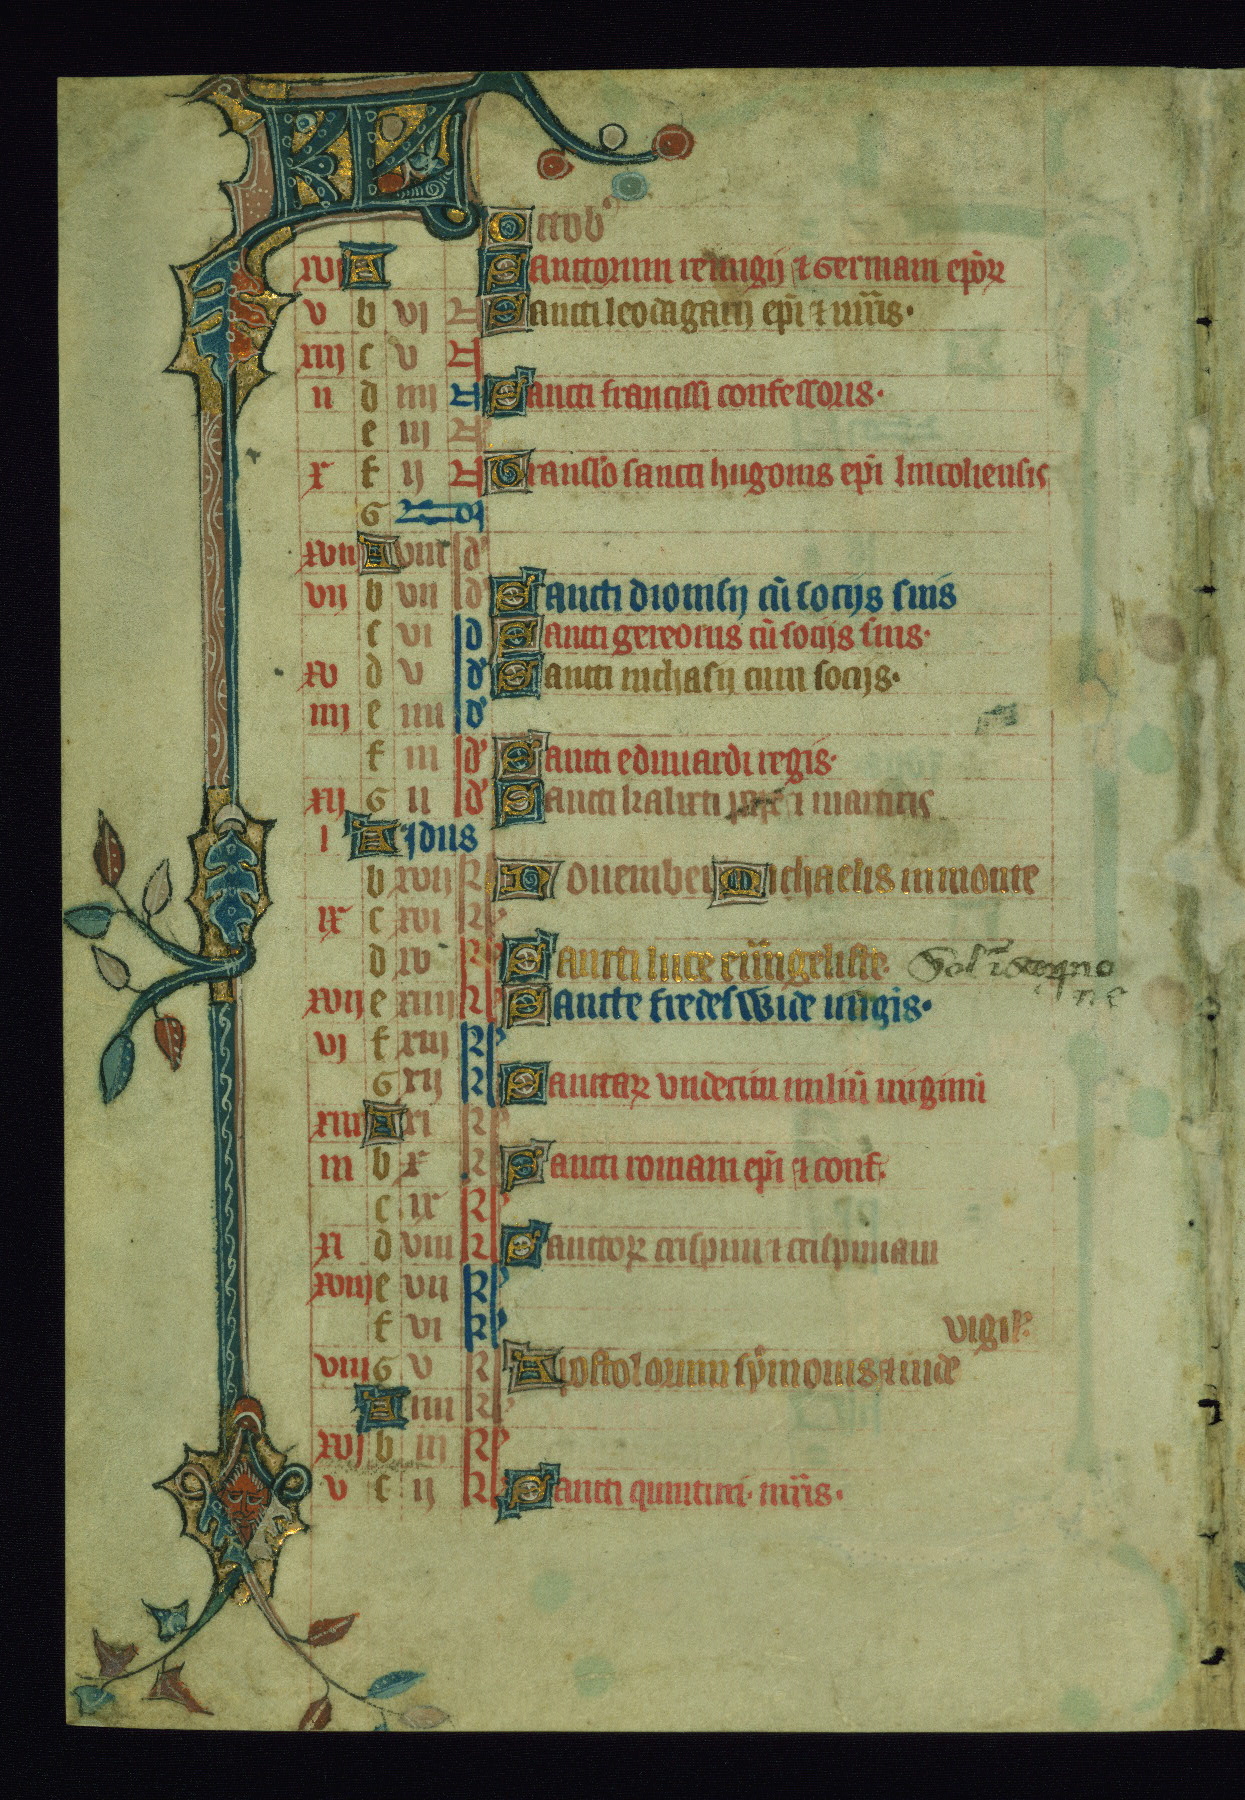 KL
Octob'
xvi A Sanctorum remigij ⁊ Germani ep̄oꝝ
v b vi N Sancti leodagarij ep̄i ⁊ mr̄is·
xiiij c v N
ii d iiij N Sancti francisci confessoris·
e iij N
x f ij N Translo sancti hugonis ep̄i lincoliensis
G No
xviii A viii id'
vii b vii id' Sancti dionisij cū socijs suis
c vi id Sancti gereonis cū socijs suis·
xv d v id' Sancti nichasij cum socijs·
iiij e iiij id'
f iii id' Sancti edwardi regis·
xij G ii id' Sancti kalixti pape ⁊ martiris
i A Idus
b xvii Kl Nouember Michaelis in monte
ix c xvi Kl
d xv Kl Sancti luce eūngeliste· Sol ī scorpione
xvij e xiiij Kl Sancte fredeswide uirgīs·
vi f xiij Kl
G xij Kl Sanctaꝝ undecim miliū uirginū
xiiii A xi Kl
iii b x Kl Sancti romani ep̄i ⁊ conf·
c ix Kl
xi d viii Kl Sanctoꝝ crispini ⁊ crispiniani
xviiij e vii Kl
f vi Kl vigil·
viii G v Kl Apostolorum symonis ⁊ iude
A iiii Kl
xvi b iii Kl
v c ij Kl Sancti quintini· mr̄is·